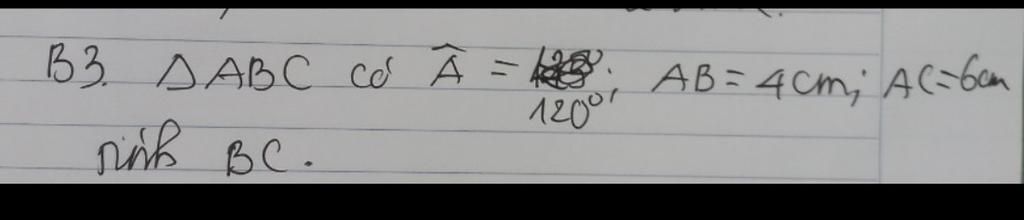 B3. △ABC có Â = 120°; AB = 4cm; AC=6cm
Tính BC.